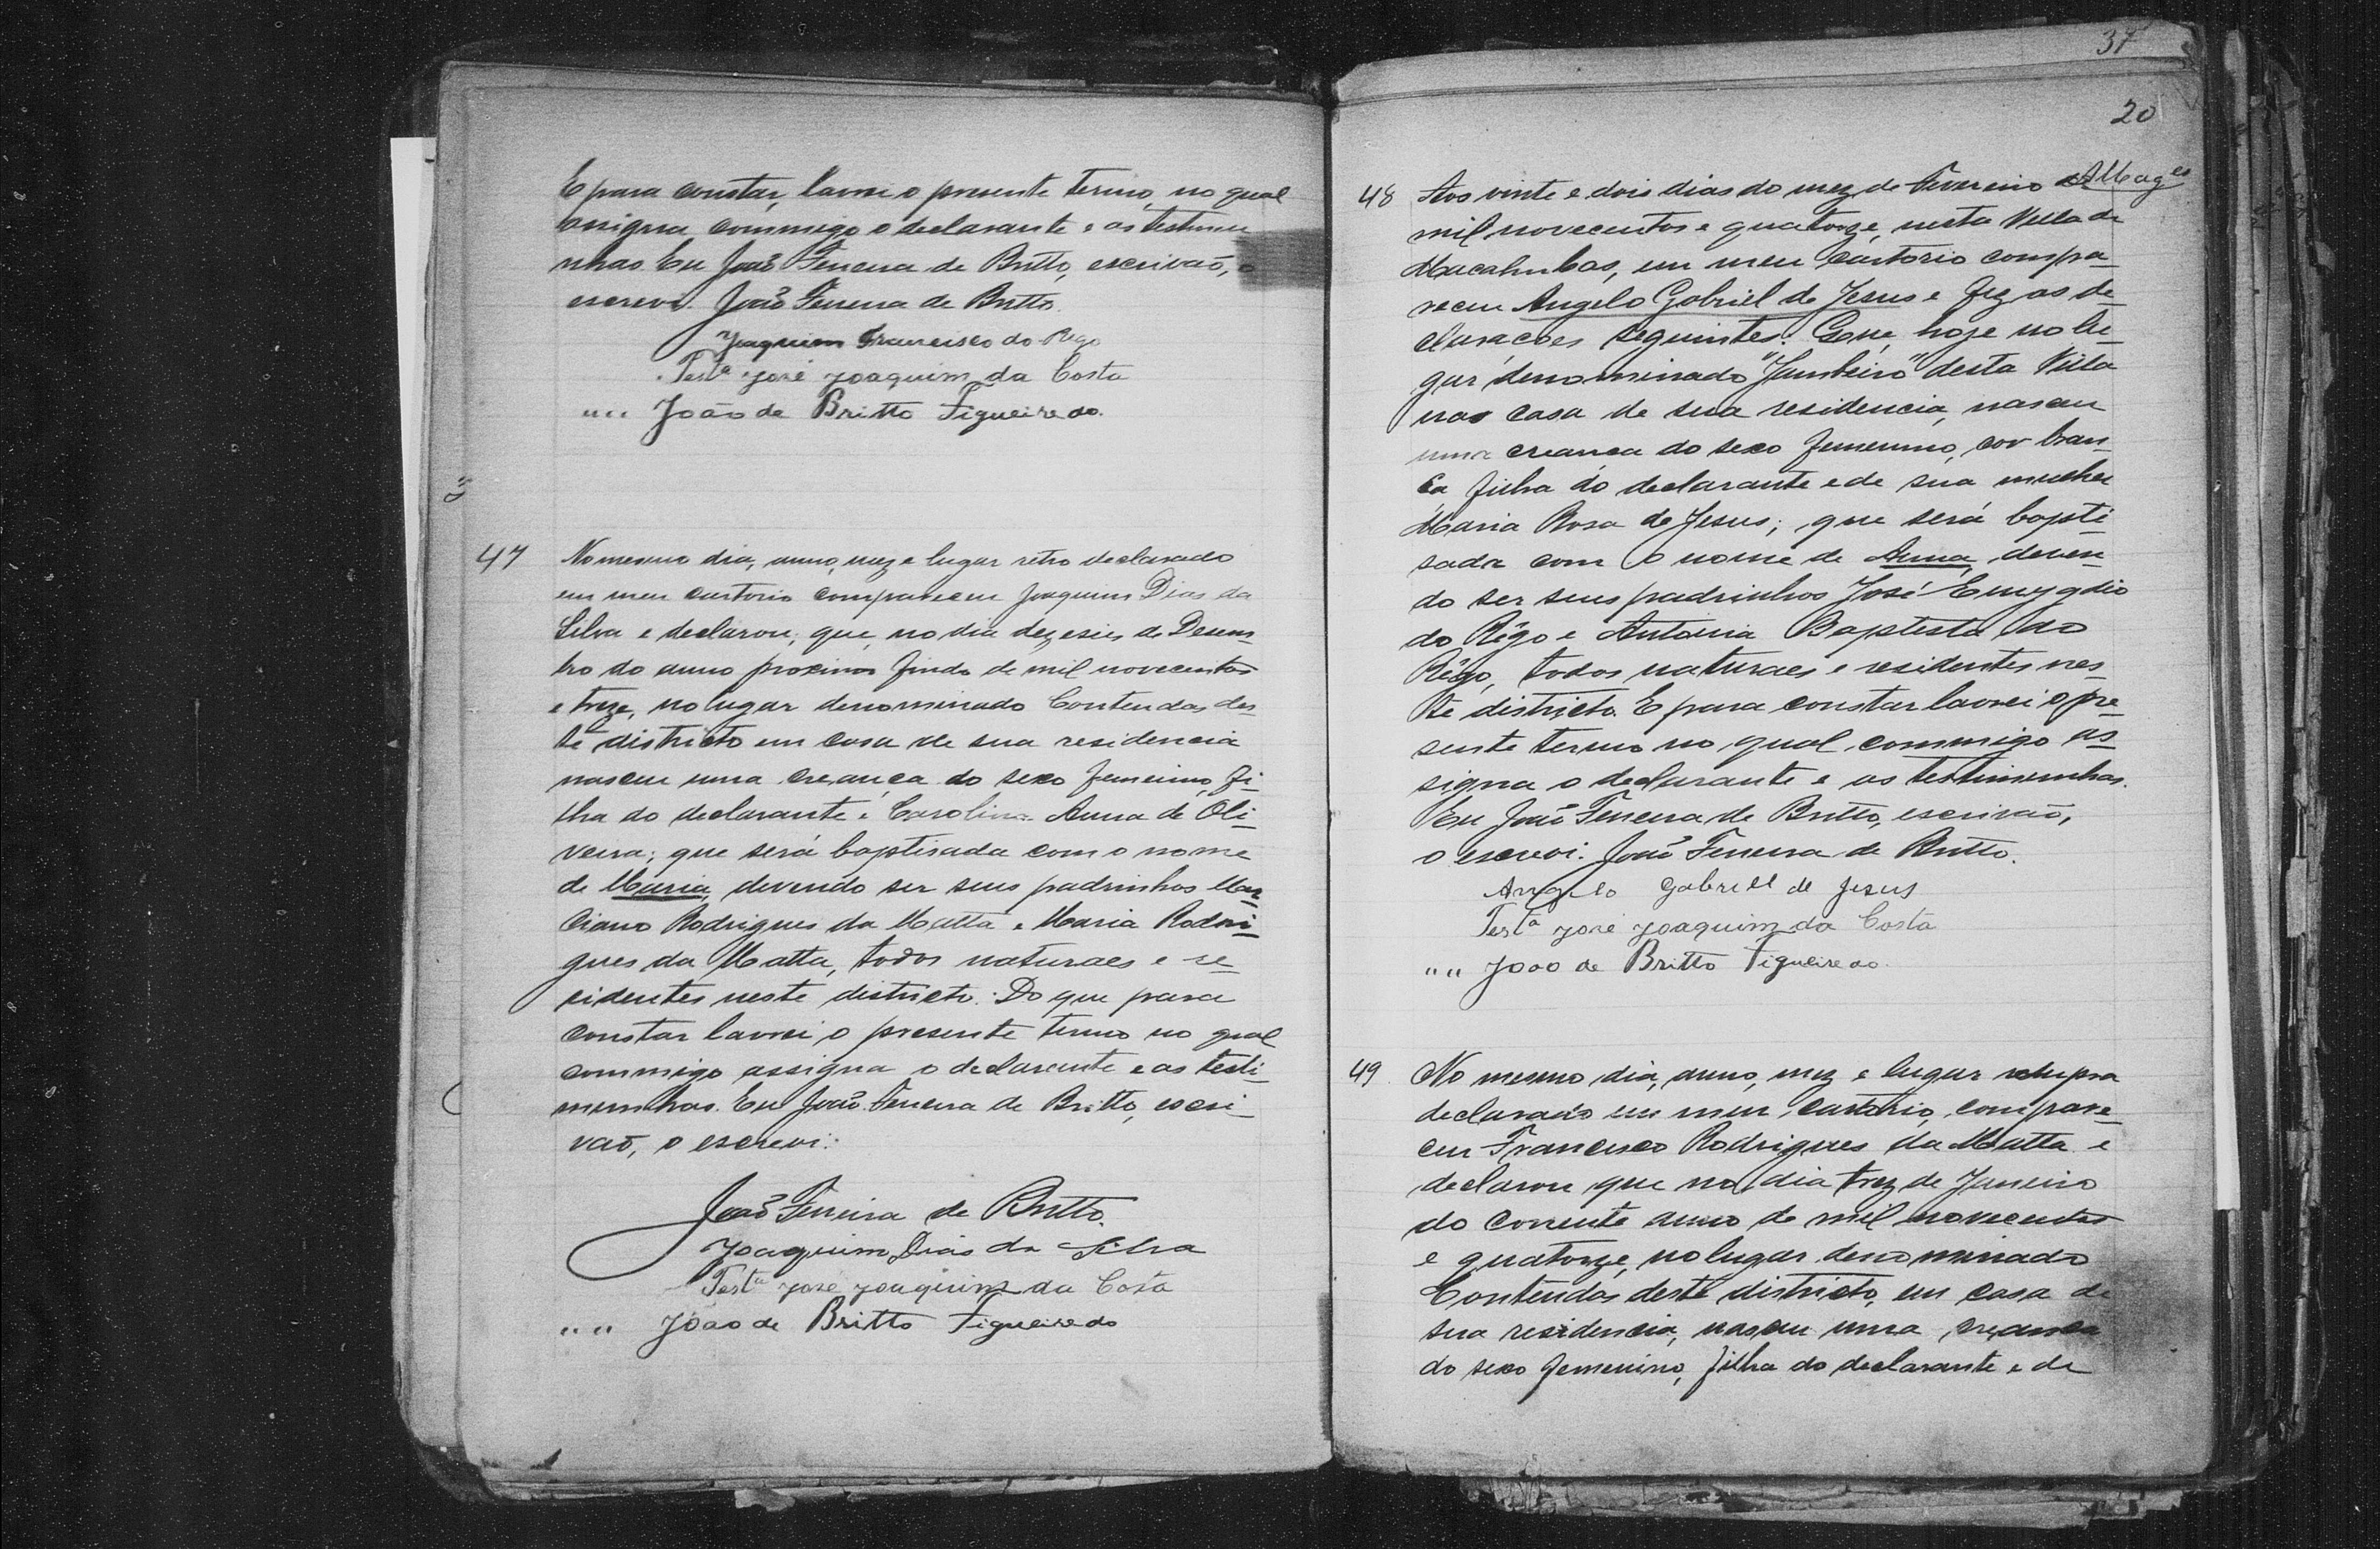 E para constar, lavrei o presente termo, no qual
assigna commigo o declarante e as testemu
nhas. Eu João Ferreira de Britto, escrivão, o
escrevi. João Ferreira de Britto.
Joaquim Francisco do Rego
Testª José Joaquim da Costa
"" João de Britto Figueiredo.
47 No mesmo dia, anno, mez e lugar retro declarado
em meu cartorio compareceu Joaquim Dias da
Silva e declarou; que, no dia dezeseis de Desem-
bro do anno proximo findo de mil novecentos
e treze, no lugar denominado Contendas des-
te districto em casa de sua residencia
nasceu uma creança do sexo femenino, fi-
lha do declarante e Carolina Anna de Oli-
veira; que será baptisada com o nome
de Maria, devendo ser seus padrinhos Mar-
ciano Rodrigues da Matta e Maria Rodri-
gues da Matta, todos naturaes e re-
sidentes neste districto. Do que para
constar lavrei o presente termo no qual
commigo assigna o declarante e as testi-
munhas. Eu João Ferreira de Britto, escri-
vão, o escrevi.
João Ferreira de Britto.
Joaquim Dias da Silva
Testª José Joaquim da Costa
"" João de Britto Figueiredo
37
20
48 Aos vinte e dois dias do mez de Fevereiro de
mil novecentos e quatorze, nesta Villa de
Macahubas, em meu Cartorio compa-
receu Angelo Gabriel de Jesus e fez as de-
clarações seguintes: Que, hoje no lu-
gar denominado "Jambeiro" desta Villa
nas casa de sua residencia, nasceu
uma creança do sexo femenino, cor bran-
ca filha do declarante e de sua mulher
Maria Rosa de Jesus; que será bapti
sada com o nome de Anna, deven-
do ser seus padrinhos José Emygdio
do Rêgo e Antonia Baptista do
Rêgo, todos naturaes e residentes nes-
te districto. E para constar lavrei o pre-
sente termo no qual commigo as-
signa o declarante e as testimunhas.
Eu João Ferreira de Britto, escrivão,
o escrevi. João Ferreira de Britto.
Angelo Gabriel de Jesus
Testª José Joaquim da Costa
"" João de Britto Figueiredo.
49 No mesmo dia, anno, mez e lugar
declarado em meu cartorio, compare-
ceu Francisco Rodrigues da Matta e
declarou que no dia trez de Janeiro
do corrente anno de mil novecentos
e quatorze, no lugar denominado
Contendas deste districto, em casa de
sua residencia, nasceu uma creança
do sexo femenino, filha do declarante e de